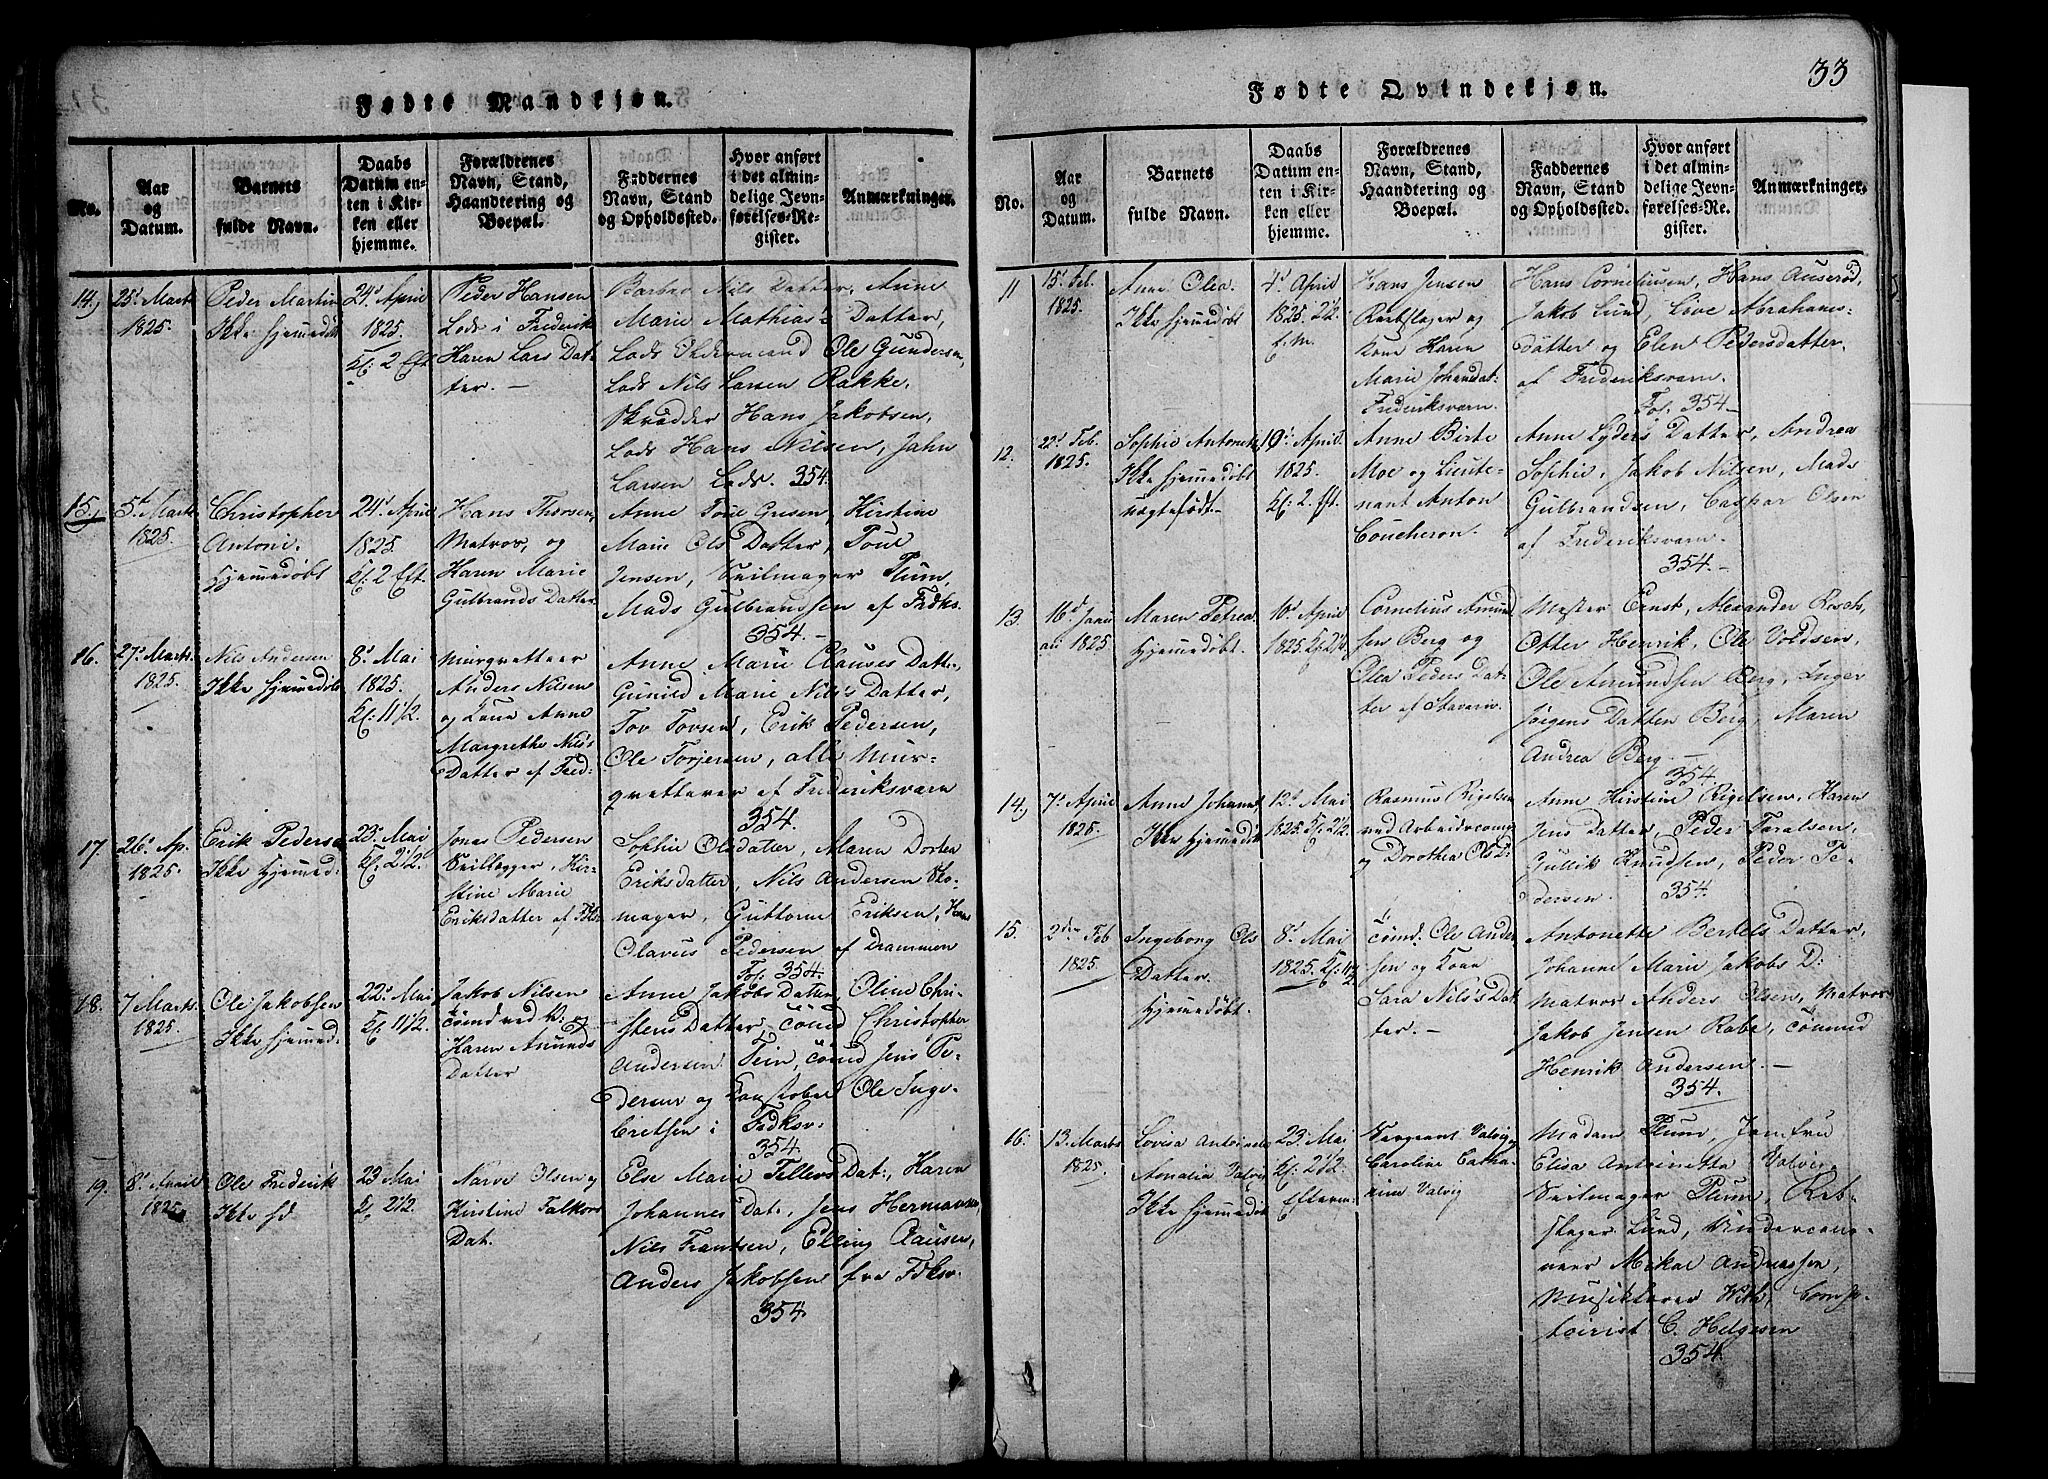 Fødte Mandkjøn.
No.
Aar
og
Datum.
Barnets
fulde Navn.
Daabs
Datum en-
ten i Kir-
ken eller
hjemme.
Forældrenes
Navn, Stand,
Haandtering og
Boepæl.
Faddernes
Navn, Stand
og Opholdssted.
Hvor anført
i det almin-
delige Jevn-
førelses-Re-
gister.
Anmærkninger.
14)
25d Marts
1825.
Peder Martin
Ikke hjemedøbt
24d April
1825.
Kl: 2 Eft
Peder Hansen
Lods i Frederik
Karen Lars Dat-
ter. —
Barbro Nils Datter, Anne
Marie Mathias's Datter,
Lods Oldermand Ole Gundersen,
Lods Nils Larsen Rakke,
Skrædder Hans Jakobsen,
Lods Hans Nilsen, Jahn
Larsen Lods. 354.
15)
5t Marts
1825.
Christopher
Antoni.
Hjemedøbt
24d April
1825.
Kl: 2 Eft.
Hans Thorsen,
Matros, og
Karen Marie
Gulbrands Datter.
Anne Toue Gresen, Kirstine
Marie Ols Datter, Poul
Jensen, Seilmager Plum,
Mads Gulbrandsen af Fredks.
354. —
16.
27d Marts
1825.
Nils Andersen
Ikke hjemedøbt
8d Mai
1825.
Kl: 11 1/2.
Murgvetteer
Anders Nilsen
og Kone Anne
Margrethe Nils's
Datter af Fred:
Anne Marie Clauses Datte,
Gunild Marie Nils's Datter,
Tov Tovsen, Erik Pedersen,
Ole Torjersen, alle Mur-
gvetterer af Frederiksværn
354.
17.
26d Ap.
1825.
Erik Pederse
Ikke Hjemed:
23d Mai
Kl: 2 1/2.
Jonas Pedersen
Seillegger, Kir-
stine Marie
Eriksdatter af Fdk
Sophie Olsdatter, Maren Dortea
Eriksdatter, Nils Andersen Sko-
mager, Guttorm Eriksen, Hans
Olavus Pedersen af Drammen
Fol: 354.
18.
7 Marts
1825.
Ole Jakobsen
Ikke hjemed:
22d Mai
Kl 11 1/2.
Jakob Nilsen
Tømd ved V: og
Karen Amunds
Datter
Anne Jakobs Datter, Oline Chri-
stens Datter, Tømd Christopher
Andersen Tein, Tømd Jens Pe-
dersen og Konstabel Ole Inge-
bretsen i Fredksv.
354
19.
8d April
1825
Ole Frederik
Ikke hd
23 Mai
Kl 2 1/2.
Narve Olsen og
Kirstine Falkors
Dat.
Else Marie Tellevs Dat:, Karen
Johannes Dat:, Jens Hermansen,
Nils Frantsen, Elling Clausen,
Anders Jakobsen fra Fdksv.
354
33
Fødte Qvindekjøn.
No.
Aar
og
Datum.
Barnets
fulde Navn.
Daabs
Datum en-
ten i Kir-
ken eller
hjemme.
Forældrenes
Navn, Stand,
Haandtering og
Boepæl.
Faddernes
Navn, Stand
og Opholdssted.
Hvor anført
i det almin-
delige Jevn-
førelses-Re-
gister.
Anmærkninger.
11
15d Feb.
1825.
Anne Olea.
Ikke hjemedøbt
4d April
1825. 2 1/2.
E. M.
Hans Jensen
Rebslager og
Kone Karen
Marie Johansdat:
Frederiksværn.
Hans Corneliusen, Hans Auserød,
Jakob Lund, Love Abrahams-
datter og Elen Pedersdatter
af Frederiksværn.
Fol: 354 —
12.
22d Feb.
1825.
Sophie Antonette
Ikke hjemedøbt
uægtefødt.
10d April
1825.
Kl: 2. Eft.
Anne Birte
Moe og Lieute-
nant Anton
Coucheron.
Anne Lyders Datter, Andrea
Sophie, Jakob Nilsen, Mads
Gulbrandsen, Caspar Olsen
af Frederiksværn.
354. —
13.
16d Janu
ari 1825.
Maren Petrea.
Hjemedøbt.
10d April
1825. Kl 2 1/2.
Cornelius Amund
sen Berg og
Olea Peders Dat-
ter af Stavern.
Mester Ernst, Alexander Resch,
Otter Henrik, Ole Voldsen,
Ole Amundsen Berg, Inger
Jørgens Datter Berg, Maren
Andrea Berg. —
354
14)
7d April
1825.
Anne Johanne
Ikke hjemedøbt
12d Mai
1825. Kl. 2 1/2.
Rasmus Rigelsen
ved Arbeidscomp
og Dorothea Ols D:
Anne Kirstine Rigelsen, Karen
Jens Datter, Peder Toralsen,
Gullik Knudsen, Peder Pe-
dersen. 354.
15.
2den Feb
1825.
Ingeborg Ols
Datter.
Hjemedøbt.
8d Mai
1825. Kl: 11 1/2
Tømd: Ole Ander
sen og Kone
Sara Nils's Dat
ter. —
Antonette Bertels Datter,
Johanne Marie Jakobs D:
Matros Anders Olsen, Matros
Jakob Jensen Rabe, Tømmd
Henrik Andersen. —
354.
16.
13. Marts
1825.
Lovisa Antoinette
Amalia Valvig
Ikke hjemedøbt
23 Mai
Kl: 2 1/2.
Efterm.
Sergeant Valvig og
Caroline Catha-
rina Valvig
Madam Plum, Jomfru
Elisa Antoinetta Valvig,
Seilmager Plum, Reb-
slager Lund, Undercano-
neer Mikal Andreassen,
Musiklærer Vith, Comp-
toirist C. Helgesen
354